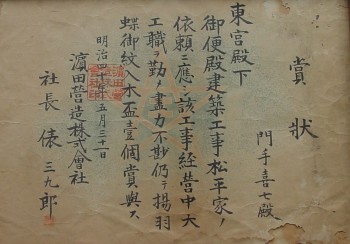 賞状
門手喜七殿
東宮殿下
御便殿建築工事松平家ノ
依頼ニ應シ該工事経営中大
工職ヲ勤メ盡力不尠仍テ揚羽
蝶御紋入木盃壹個賞與ス
明治四十年五月三十一日
濵田営造株式會社
社長 俵三九郎